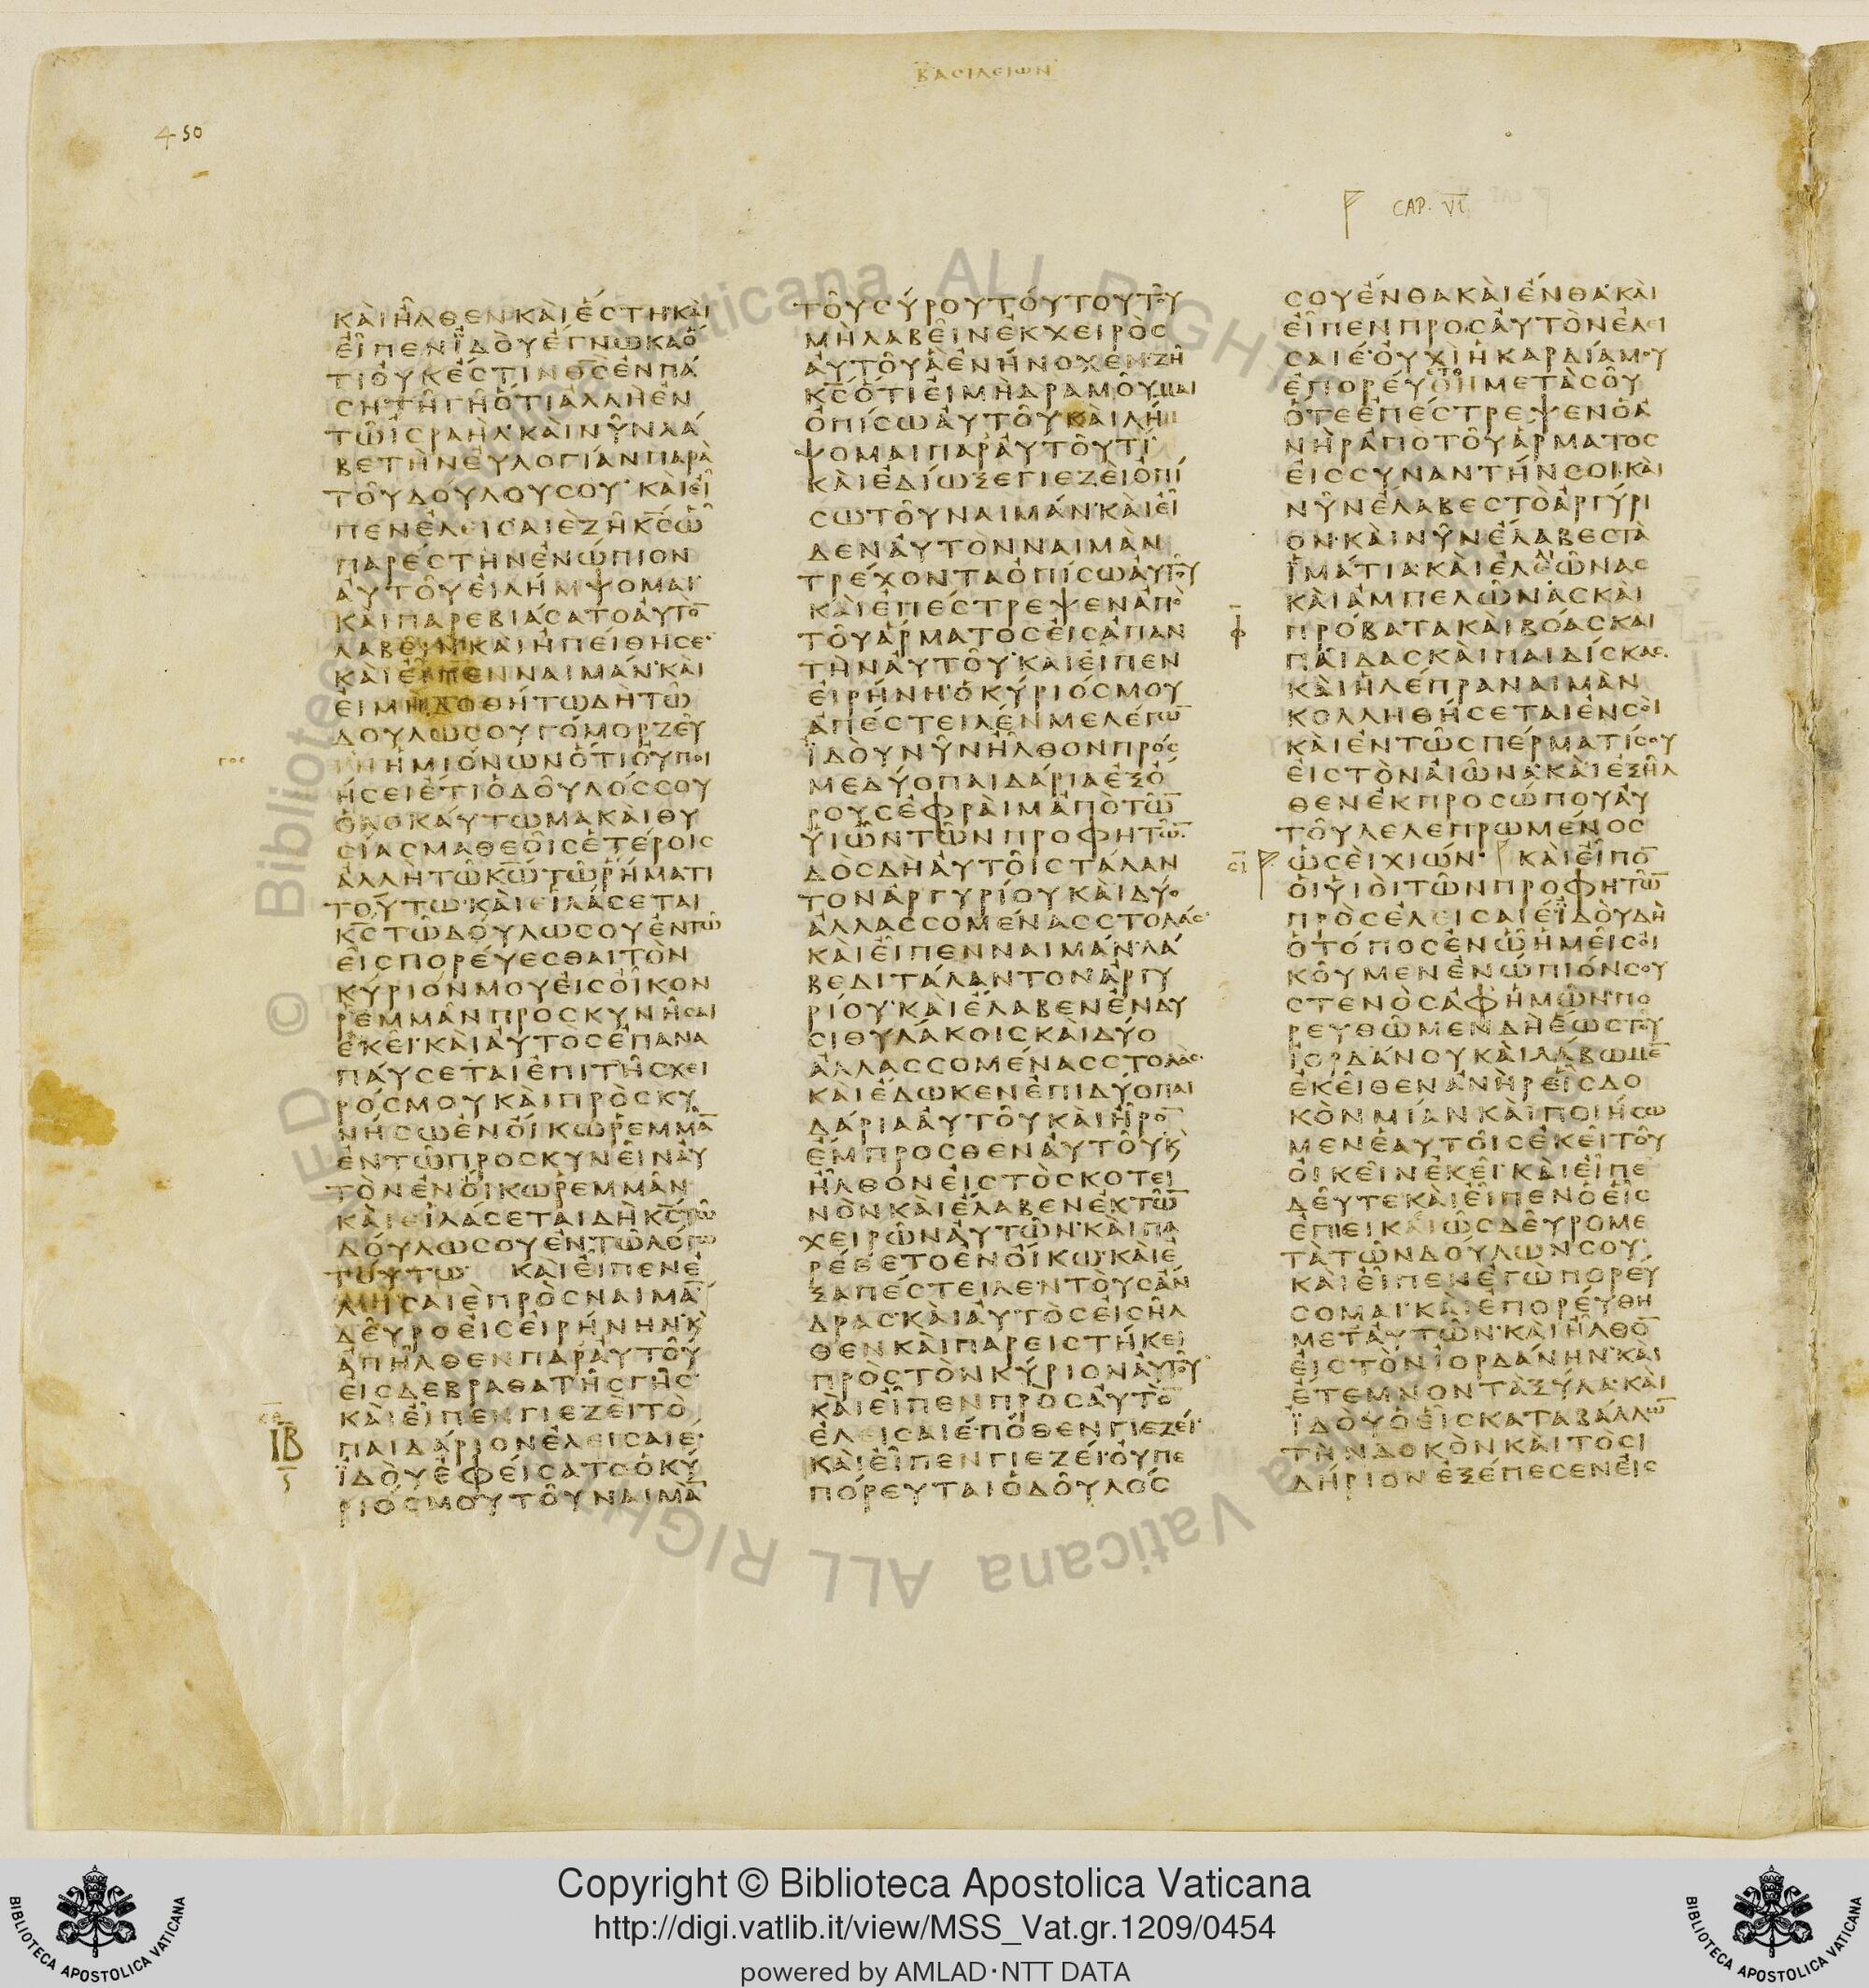 ΒΑΣΙΛΕΙΩΝ
450
CAP. VI
ΚΑῚἮΛΘΕΝΚΑῚἜΣΤΗΚΑῚ
ΕἾΠΕΝἸΔΟῪἜΓΝΩΚΑὍ
ΤΙΟΥ̓ΚἜΣΤΙΝΘ̅Σ̅ἘΝΠΆ
ΣΗΤΗ͂ΓΗ͂ὍΤΙἈΛΛῊἘΝ
ΤΩ͂ἸΣΡΑῊΛ·ΚΑῚΝΥ͂ΝΛΆ
ΒΕΤῊΝΕΥ̓ΛΟΓΊΑΝΠΑΡᾺ
ΤΟΥ͂ΔΟΎΛΟΥΣΟΥ· ΚΑῚΕἾ
ΠΕΝἘΛΕΙΣΑΙῈΖΗ͂Κ̅Σ̅Ὧ
ΠΑΡΈΣΤΗΝἘΝΏΠΙΟΝ
ΑΥ̓ΤΟΥ͂ΕἸΛΉΜΨΟΜΑΙ·
ΚΑῚΠΑΡΕΒΙΆΣΑΤΟΑΥ̓ΤῸ̅
ΛΑΒΕΙ͂Ν·ΚΑῚἨΠΕΊΘΗΣΕ·
ΚΑῚΕἾΠΕΝΝΑΙΜΆΝ·ΚΑῚ
ΕἸΜῊΔΟΘΉΤΩΔῊΤΩ͂
ΔΟΎΛΩΣΟΥΓΌΜΟΡΖΕΥ͂
ΓΗἩΜΙΌΝΩΝὍΤΙΟΥ̓ΠΟΙ
ΉΣΕΙἜΤΙὉΔΟΥ͂ΛΌΣΣΟΥ
ὉΛΟΚΑΎΤΩΜΑΚΑῚΘΥ
ΣΊΑΣΜΑΘΕΟΙ͂ΣἙΤΈΡΟΙΣ
ἈΛΛῊΤΩ͂Κ̅Ω̅ΤΩ͂ῬΉΜΑΤΙ
ΤΟΎΤΩ·ΚΑῚΕἹΛΆΣΕΤΑΙ
Κ̅Σ̅ΤΩ͂ΔΟΎΛΩΣΟΥἘΝΤΩ͂
ΕἸΣΠΟΡΕΎΕΣΘΑΙΤῸΝ
ΚΎΡΙΟΝΜΟΥΕἸΣΟἾΚΟΝ
ῬΕΜΜᾺΝΠΡΟΣΚΥΝΗ͂ΣΑΙ
ἘΚΕΙ͂·ΚΑῚΑΥ̓ΤῸΣἘΠΑΝΑ
ΠΑΎΣΕΤΑΙἘΠῚΤΗ͂ΣΧΕΙ
ΡΌΣΜΟΥΚΑῚΠΡΟΣΚΥ
ΝΉΣΩἘΝΟἼΚΩῬΕΜΜΆ̅
ἘΝΤΩ͂ΠΡΟΣΚΥΝΕΙ͂ΝΑΥ̓
ΤῸΝἘΝΟἼΚΩῬΕΜΜᾺΝ
ΚΑῚΕἹΛΆΣΕΤΑΙΔῊΚ̅Σ̅ΤΩ͂
ΔΟΎΛΩΣΟΥἘΝΤΩ͂ΛΌΓΩ
ΤΟΎΤΩ· ΚΑῚΕἾΠΕΝἘ
ΛΗΣΑΙῈΠΡῸΣΝΑΙΜΆ̅
ΔΕΥ͂ΡΟΕἸΣΕἸΡΉΝΗΝ·Κ̀
ἈΠΗ͂ΛΘΕΝΠΑΡΑΥ̓ΤΟΥ͂
ΕἸΣΔΕΒΡΑΘᾺΤΗ͂ΣΓΗ͂Σ·
ΚΑῚΕἾΠΕΝΓΙΕΖΕῚΤῸ
ΠΑΙΔΆΡΙΟΝἘΛΕΙΣΑΙΕ·
ἸΔΟῪἘΦΕΊΣΑΤΟὉΚΎ
ΡΙΌΣΜΟΥΤΟΥ͂ΝΑΙΜᾺ̅
ΤΟΥ͂ΣΎΡΟΥΤΟΎΤΟΥΤΟΥ͂
ΜῊΛΑΒΕΙ͂ΝἘΚΧΕΙΡῸΣ
ΑΥ̓ΤΟΥ͂ἋἘΝΉΝΟΧΕΝ·ΖΗ͂
Κ̅Σ̅ὍΤΙΕἸΜῊΔΡΑΜΟΥ͂ΜΑΙ
ὈΠΊΣΩΑΥ̓ΤΟΥ͂ΚΑῚΛΉΜ
ΨΟΜΑΙΠΑΡΑΥ̓ΤΟΥ͂ΤΙ·
ΚΑῚἘΔΊΩΞΕΓΙΕΖΕῚὈΠΊ
ΣΩΤΟΥ͂ΝΑΙΜΆΝ·ΚΑῚΕἾ
ΔΕΝΑΥ̓ΤῸΝΝΑΙΜᾺΝ
ΤΡΈΧΟΝΤΑὈΠΊΣΩΑΥ̓ΤΟΥ͂
ΚΑῚἘΠΈΣΤΡΕΨΕΝἈΠῸ
ΤΟΥ͂ἍΡΜΑΤΟΣΕἸΣἈΠΑΝ
ΤῊΝΑΥ̓ΤΟΥ͂·ΚΑῚΕἾΠΕΝ
ΕἸΡΉΝΗ·ὉΚΎΡΙΌΣΜΟΥ
ἈΠΈΣΤΕΙΛΈΝΜΕΛΈΓΩ̅
ἸΔΟῪΝΥ͂ΝἮΛΘΟΝΠΡΌΣ
ΜΕΔΎΟΠΑΙΔΆΡΙΑἘΞὌ
ΡΟΥΣἘΦΡΑῚΜἈΠῸΤΩ͂̅
ΥἹΩ͂ΝΤΩ͂ΝΠΡΟΦΗΤΩ͂̅·
ΔῸΣΔῊΑΥ̓ΤΟΙ͂ΣΤΆΛΑΝ
ΤΟΝἈΡΓΥΡΊΟΥΚΑῚΔΎΟ
ἈΛΛΑΣΣΟΜΈΝΑΣΣΤΟΛΆΣ·
ΚΑῚΕἾΠΕΝΝΑΙΜΆΝ·ΛΆ
ΒΕΔΙΤΆΛΑΝΤΟΝἈΡΓΥ
ΡΊΟΥ·ΚΑῚἜΛΑΒΕΝἘΝΔΥ
ΣῚΘΥΛΆΚΟΙΣΚΑῚΔΎΟ
ἈΛΛΑΣΣΟΜΈΝΑΣΣΤΟΛΆΣ·
ΚΑῚἜΔΩΚΕΝἘΠῚΔΎΟΠΑΙ
ΔΆΡΙΑΑΥ̓ΤΟΥ͂ΚΑῚἮΡΟ̅
ἜΜΠΡΟΣΘΕΝΑΥ̓ΤΟΥ͂Κ̀
ἮΛΘΟΝΕἸΣΤῸΣΚΟΤΕΙ
ΝῸΝΚΑῚἜΛΑΒΕΝἘΚΤΩ͂̅
ΧΕΙΡΩ͂ΝΑΥ̓ΤΩ͂Ν·ΚΑῚΠΑ
ΡΈΘΕΤΟἘΝΟἼΚΩ·ΚΑῚἘ
ΞΑΠΈΣΤΕΙΛΕΝΤΟῪΣἌΝ
ΔΡΑΣΚΑῚΑΥ̓ΤῸΣΕἸΣΗ͂Λ
ΘΕΝΚΑῚΠΑΡΕΙΣΤΉΚΕΙ
ΠΡῸΣΤῸΝΚΎΡΙΟΝΑΥ̓ΤΟΥ͂·
ΚΑῚΕἾΠΕΝΠΡῸΣΑΥ̓ΤῸ̅
ἘΛΕΙΣΑΙΈ·ΠΌΘΕΝΓΙΕΖΕΊ·
ΚΑῚΕἾΠΕΝΓΙΕΖΕΊ·ΟΥ̓ΠΕ
ΠΌΡΕΥΤΑΙὉΔΟΥ͂ΛΌΣ
ΣΟΥἜΝΘΑΚΑῚἜΝΘΑ·ΚΑῚ
ΕἾΠΕΝΠΡῸΣΑΥ̓ΤῸΝἘΛΕΙ
ΣΑΙΈ·ΟΥ̓ΧῚἩΚΑΡΔΊΑΜΟΥ
ἘΠΟΡΕΎΘΗΜΕΤᾺΣΟΥ͂
ὍΤΕἘΠΈΣΤΡΕΨΕΝὉἈ
ΝῊΡἈΠῸΤΟΥ͂ἍΡΜΑΤΟΣ
ΕἸΣΣΥΝΑΝΤΉΝΣΟΙ·ΚΑῚ
ΝΥ͂ΝἜΛΑΒΕΣΤῸἈΡΓΎΡΙ
ΟΝ·ΚΑῚΝΥ͂ΝἜΛΑΒΕΣΤᾺ
ἹΜΆΤΙΑ·ΚΑῚἘΛΑΙΩ͂ΝΑΣ
ΚΑῚἈΜΠΕΛΩ͂ΝΑΣΚΑῚ
ΠΡΌΒΑΤΑΚΑῚΒΌΑΣΚΑῚ
ΠΑΙ͂ΔΑΣΚΑῚΠΑΙΔΊΣΚΑΣ·
ΚΑῚἩΛΈΠΡΑΝΑΙΜᾺΝ
ΚΟΛΛΗΘΉΣΕΤΑΙἘΝΣΟῚ
ΚΑῚἘΝΤΩ͂ΣΠΈΡΜΑΤΊΣΟΥ
ΕἸΣΤῸΝΑἸΩ͂ΝΑ·ΚΑῚἘΞΗ͂Λ
ΘΕΝἘΚΠΡΟΣΏΠΟΥΑΥ̓
ΤΟΥ͂ΛΕΛΕΠΡΩΜΈΝΟΣ
ὩΣΕῚΧΙΏΝ· ΚΑῚΕἾΠΟ̅
ΟἹΥἹΟῚΤΩ͂ΝΠΡΟΦΗΤΩ͂̅
ΠΡῸΣἘΛΕΙΣΑΙΈ·ἸΔΟῪΔῊ
ὉΤΌΠΟΣἘΝΩ͂ἩΜΕΙ͂ΣΟἸ
ΚΟΥ͂ΜΕΝἘΝΏΠΙΌΝΣΟΥ
ΣΤΕΝῸΣἈΦἩΜΩ͂Ν·ΠΟ
ΡΕΥΘΩ͂ΜΕΝΔῊἝΩΣΤΟΥ͂
ἸΟΡΔΆΝΟΥΚΑῚΛΆΒΩΜΕ̅
ἘΚΕΙ͂ΘΕΝἈΝῊΡΕἿΣΔΟ
ΚῸΝΜΊΑΝΚΑῚΠΟΙΉΣΩ
ΜΕΝἙΑΥΤΟΙ͂ΣἘΚΕΙ͂ΤΟΥ͂
ΟἸΚΕΙ͂ΝἘΚΕΙ͂·ΚΑῚΕἾΠΕ̅
ΔΕΥ͂ΤΕΚΑῚΕἾΠΕΝὉΕἿΣ
ἘΠΙΕΙΚΑΙΩ͂ΣΔΕΥ͂ΡΟΜΕ
ΤᾺΤΩ͂ΝΔΟΎΛΩΝΣΟΥ·
ΚΑῚΕἾΠΕΝἘΓῺΠΟΡΕΎ
ΣΟΜΑΙ·ΚΑῚἘΠΟΡΕΎΘΗ
ΜΕΤΑΥ̓ΤΩ͂Ν·ΚΑῚἮΛΘΟ̅
ΕἸΣΤῸΝἸΟΡΔΆΝΗΝ·ΚΑῚ
ἜΤΕΜΝΟΝΤᾺΞΎΛΑ·ΚΑῚ
ἸΔΟῪὉΕἿΣΚΑΤΑΒΆΛΛΩ̅
ΤῊΝΔΟΚῸΝΚΑῚΤῸΣΙ
ΔΉΡΙΟΝἘΞΈΠΕΣΕΝΕἸΣ
Copyright © Biblioteca Apostolica Vaticana
http://digi.vatlib.it/view/MSS_Vat.gr.1209/0454
powered by AMLAD·NTT DATA
BIBLIOTECA APOSTOLICA VATICANA
BIBLIOTECA APOSTOLICA VATICANA